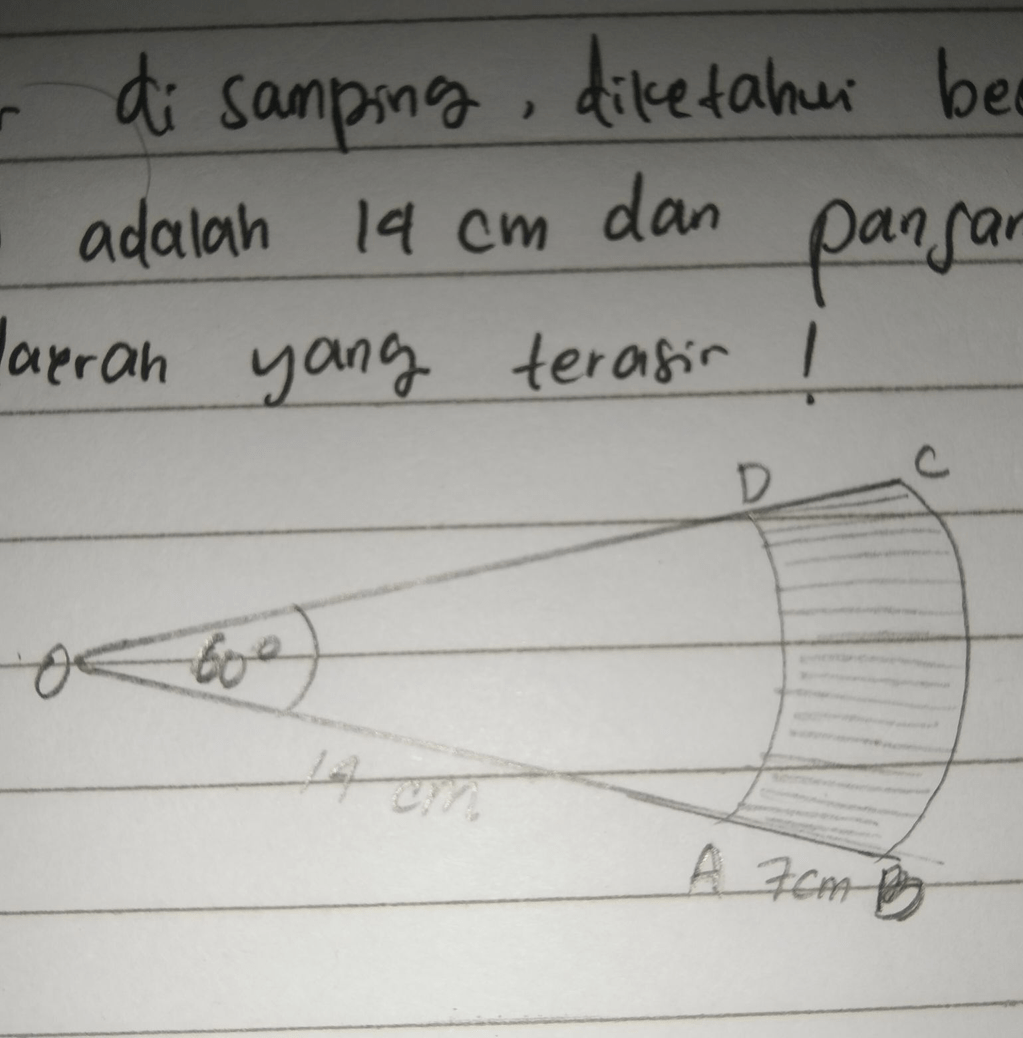 di samping, diketahui
adalah 14 cm dan
yang terasir !
D
C
O
60°
14 cm
A 7cm B